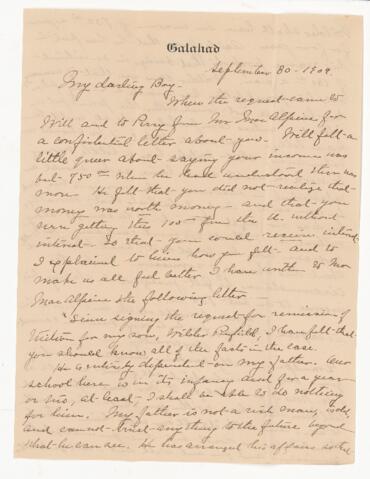 Galahad
September 30 - 1909.
My darling Boy -
When the request came to
Will and to Perry from Mr Mac Alpine for
a confidential letter about you - Will felt a
little queer about saying your income was
but 950 when he understood there was
more. He felt that you did not realize that
money was worth money - and that you
were getting this 100 from the U. without
interest - so that you could receive interest
I explained to him how you felt - and to
make us all feel better I have written to Mr
Mac Alpine the following letter
"Since signing the request for remission of
tuition for my son, Wilder Penfield, I have felt that
you should know all of the facts in the case.
He is entirely dependent on my father. Our
school here is in its infancy and for a year
or two, at least, I shall be able to do nothing
for him. My father is not a rich man, is old
and cannot trust anything to the future beyond
what he can see. He has arranged his affairs so that